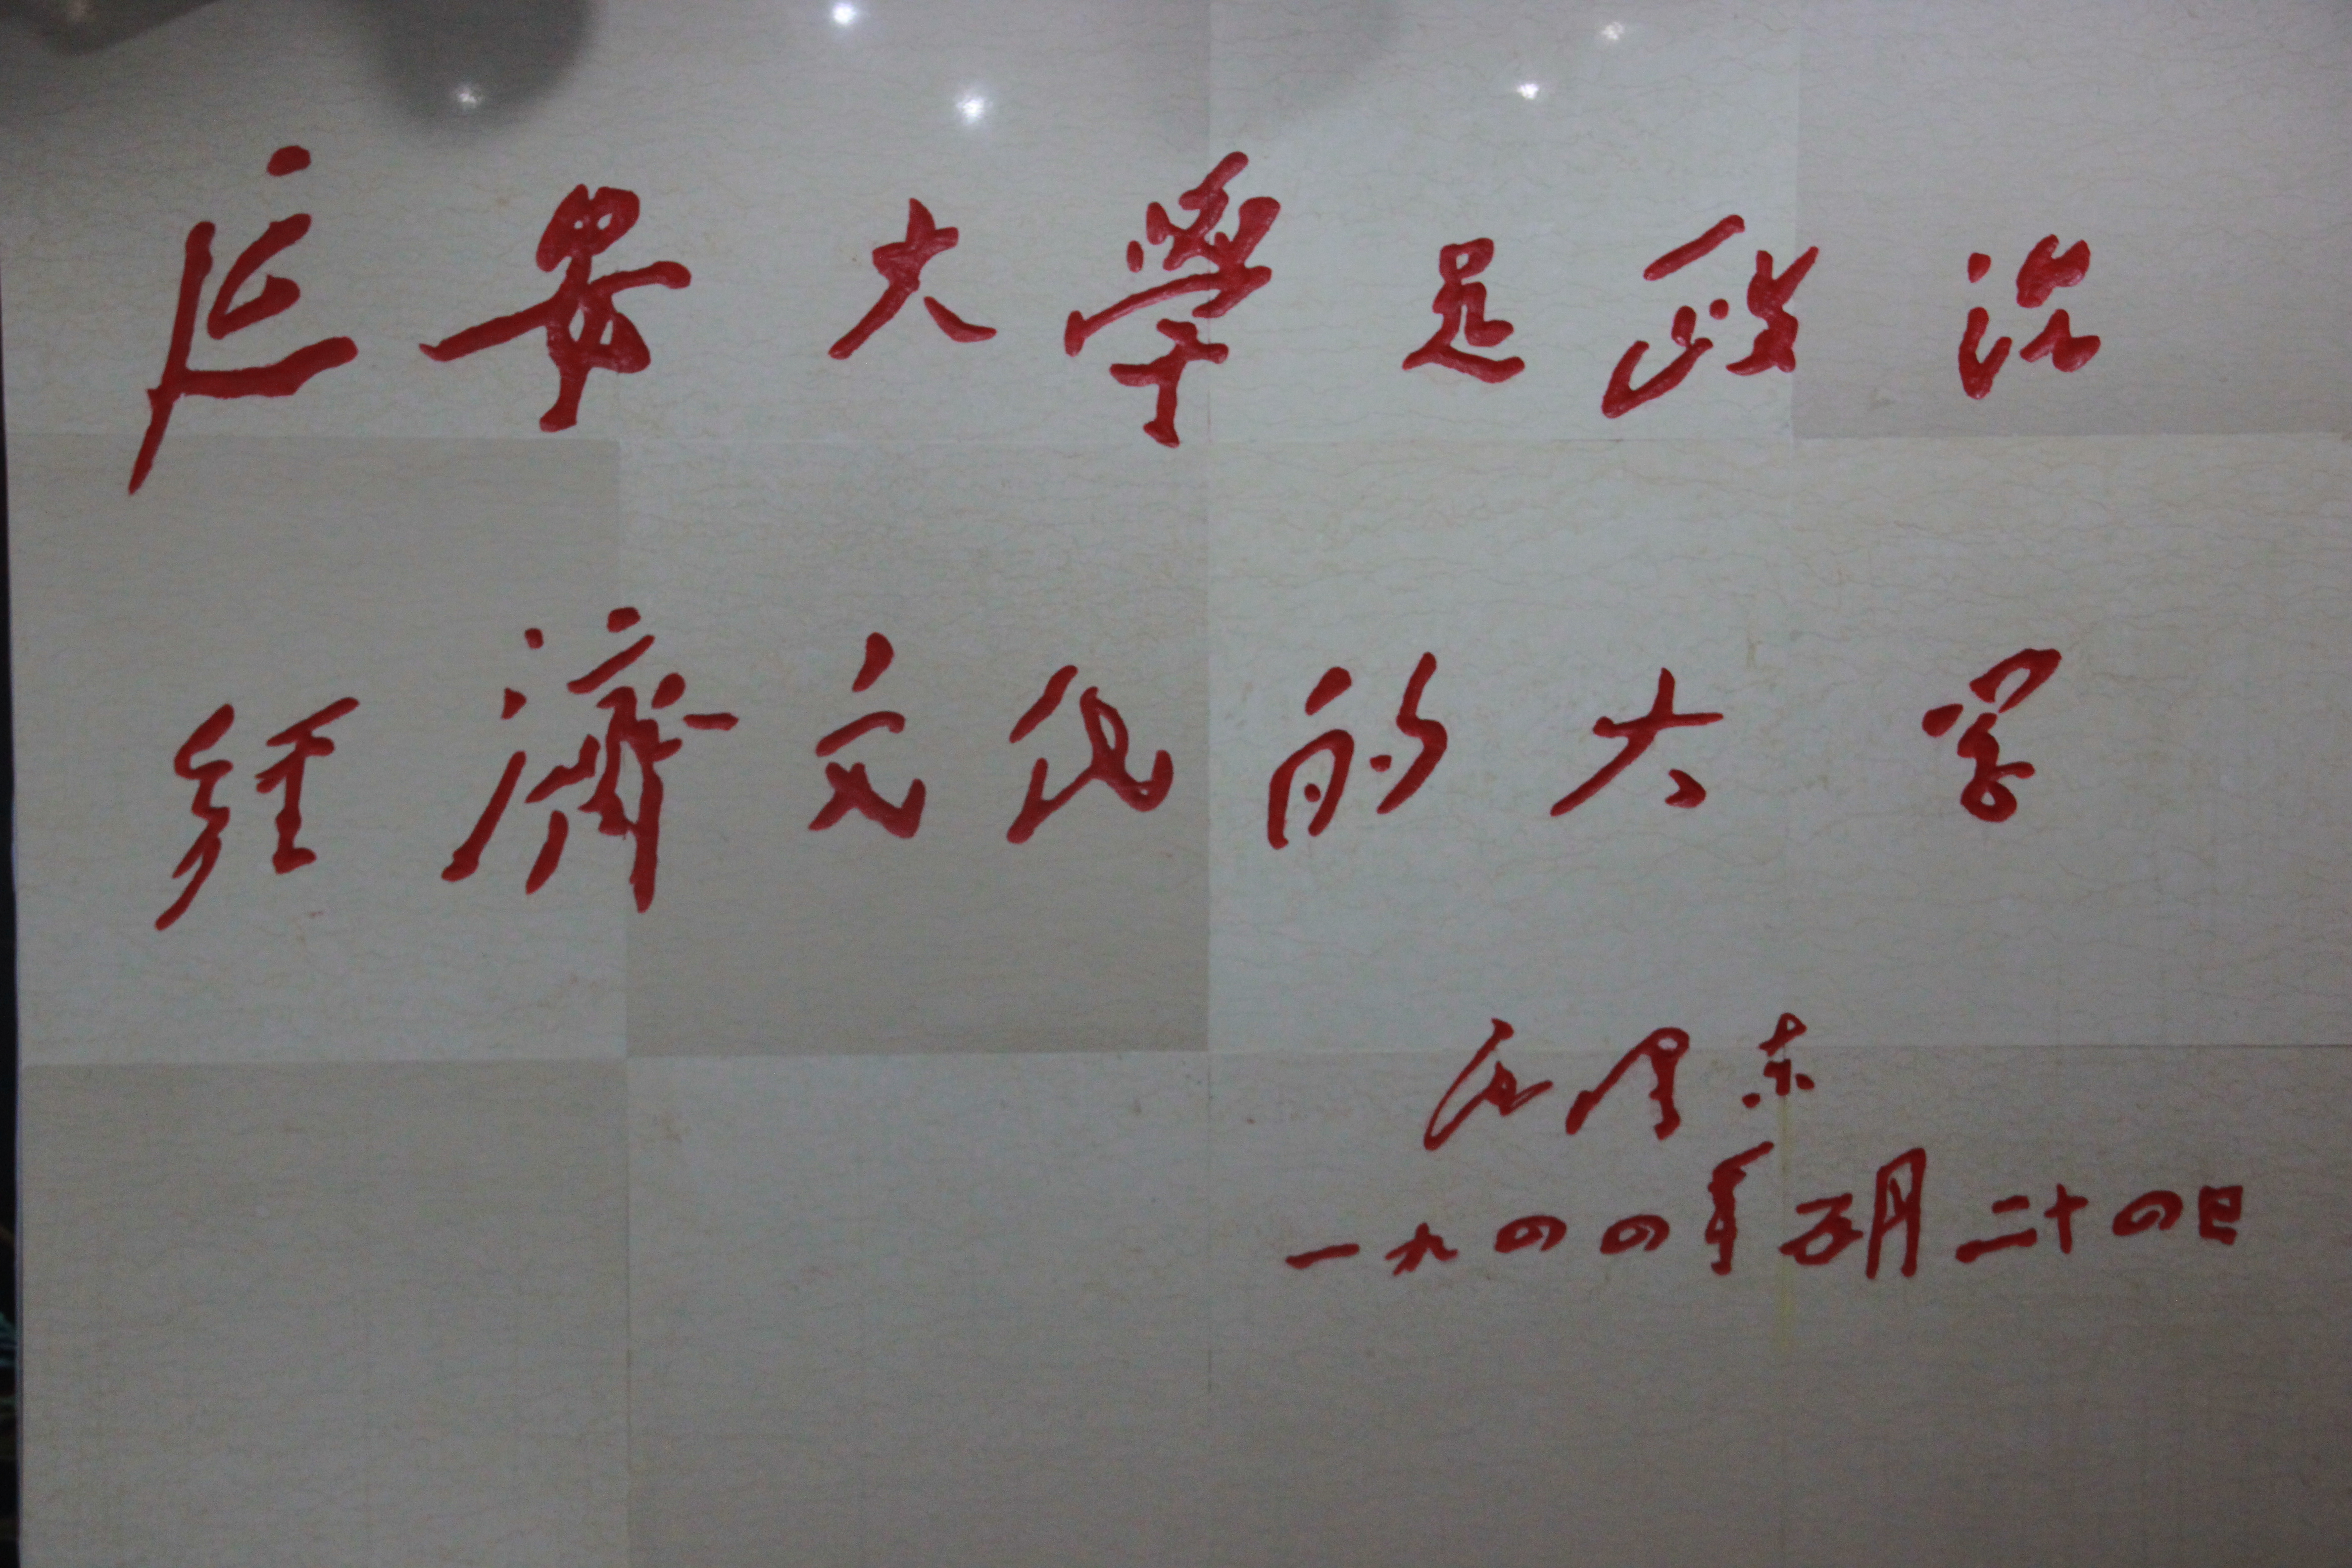 延安大學是政治
經濟文化的大学
毛澤东
一九四四年五月二十四日